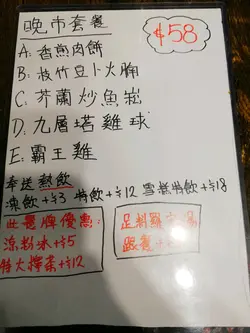 晚市套餐
$58
A: 香煎肉餅
B: 枝竹豆卜火腩
C: 芥蘭炒魚崧
D: 九層塔雞球
E: 霸王雞
奉送熱飲
凍飲+$3 特飲+$12 雪糕特飲+$18
此餐牌優惠:
涼粉冰+$5
特大檸茶+$12
足料
跟餐+$